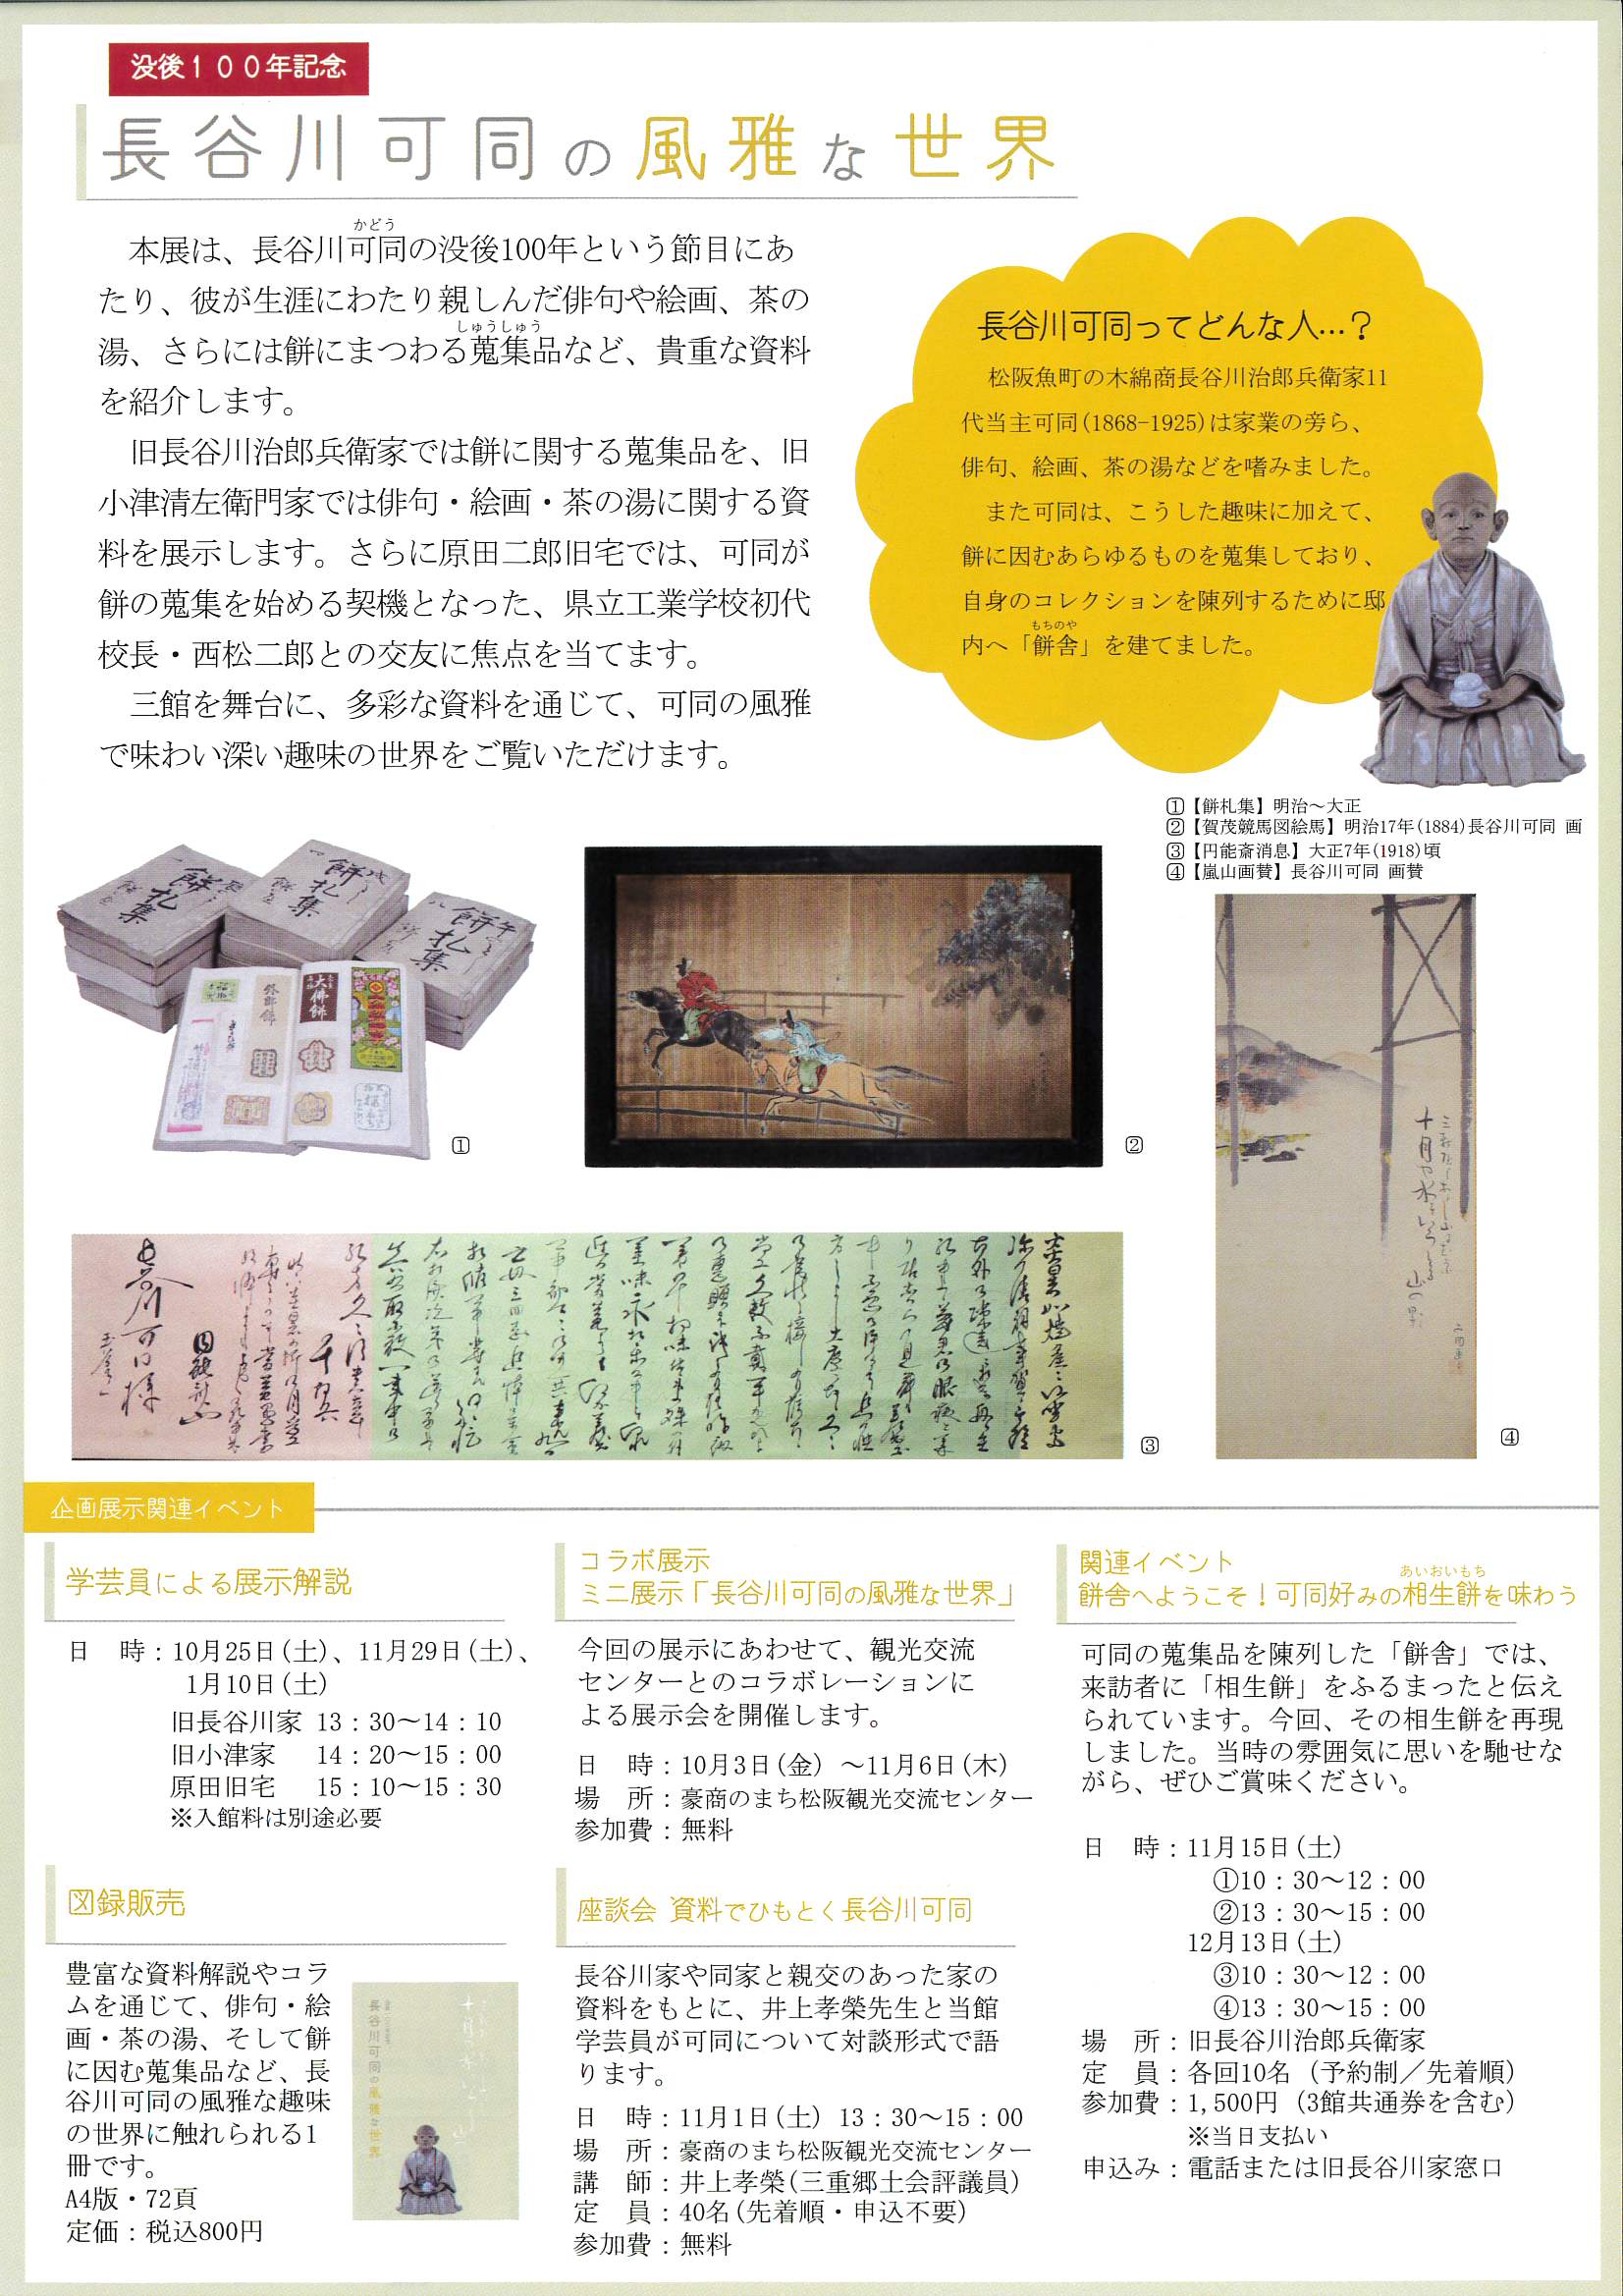 没後１００年記念
長谷川可同の風雅な世界
かどう
本展は、長谷川可同の没後100年という節目にあ
たり、彼が生涯にわたり親しんだ俳句や絵画、茶の
しゅうしゅう
湯、さらには餅にまつわる蒐集品など、貴重な資料
を紹介します。
旧長谷川治郎兵衛家では餅に関する蒐集品を、旧
小津清左衛門家では俳句・絵画・茶の湯に関する資
料を展示します。さらに原田二郎旧宅では、可同が
餅の蒐集を始める契機となった、県立工業学校初代
校長・西松二郎との交友に焦点を当てます。
三館を舞台に、多彩な資料を通じて、可同の風雅
で味わい深い趣味の世界をご覧いただけます。
長谷川可同ってどんな人…？
松阪魚町の木綿商長谷川治郎兵衛家11
代当主可同(1868-1925)は家業の旁ら、
俳句、絵画、茶の湯などを嗜みました。
また可同は、こうした趣味に加えて、
餅に因むあらゆるものを蒐集しており、
自身のコレクションを陳列するために邸
もちのや
内へ「餅舎」を建てました。
①【餅札集】明治～大正
②【賀茂競馬図絵馬】明治17年(1884)長谷川可同 画
③【円能斎消息】大正7年(1918)頃
④【嵐山画賛】長谷川可同 画賛
餅札集
餅札集
餅札集
大佛餅
①
②
③
④
企画展示関連イベント
学芸員による展示解説
日　時：10月25日(土)、11月29日(土)、
1月10日(土)
旧長谷川家 13：30～14：10
旧小津家 14：20～15：00
原田旧宅 15：10～15：30
※入館料は別途必要
図録販売
豊富な資料解説やコラ
ムを通じて、俳句・絵
画・茶の湯、そして餅
に因む蒐集品など、長
谷川可同の風雅な趣味
の世界に触れられる1
冊です。
A4版・72頁
定価：税込800円
長谷川可同の風雅な世界
コラボ展示
ミニ展示「長谷川可同の風雅な世界」
今回の展示にあわせて、観光交流
センターとのコラボレーションに
よる展示会を開催します。
日　時：10月3日(金) ～11月6日(木)
場　所：豪商のまち松阪観光交流センター
参加費：無料
座談会 資料でひもとく長谷川可同
長谷川家や同家と親交のあった家の
資料をもとに、井上孝榮先生と当館
学芸員が可同について対談形式で語
ります。
日　時：11月1日(土) 13：30～15：00
場　所：豪商のまち松阪観光交流センター
講　師：井上孝榮(三重郷土会評議員)
定　員：40名(先着順・申込不要)
参加費：無料
関連イベント
あいおいもち
餅舎へようこそ！可同好みの相生餅を味わう
可同の蒐集品を陳列した「餅舎」では、
来訪者に「相生餅」をふるまったと伝え
られています。今回、その相生餅を再現
しました。当時の雰囲気に思いを馳せな
がら、ぜひご賞味ください。
日　時：11月15日(土)
①10：30～12：00
②13：30～15：00
12月13日(土)
③10：30～12：00
④13：30～15：00
場　所：旧長谷川治郎兵衛家
定　員：各回10名（予約制／先着順）
参加費：1,500円（3館共通券を含む）
※当日支払い
申込み：電話または旧長谷川家窓口